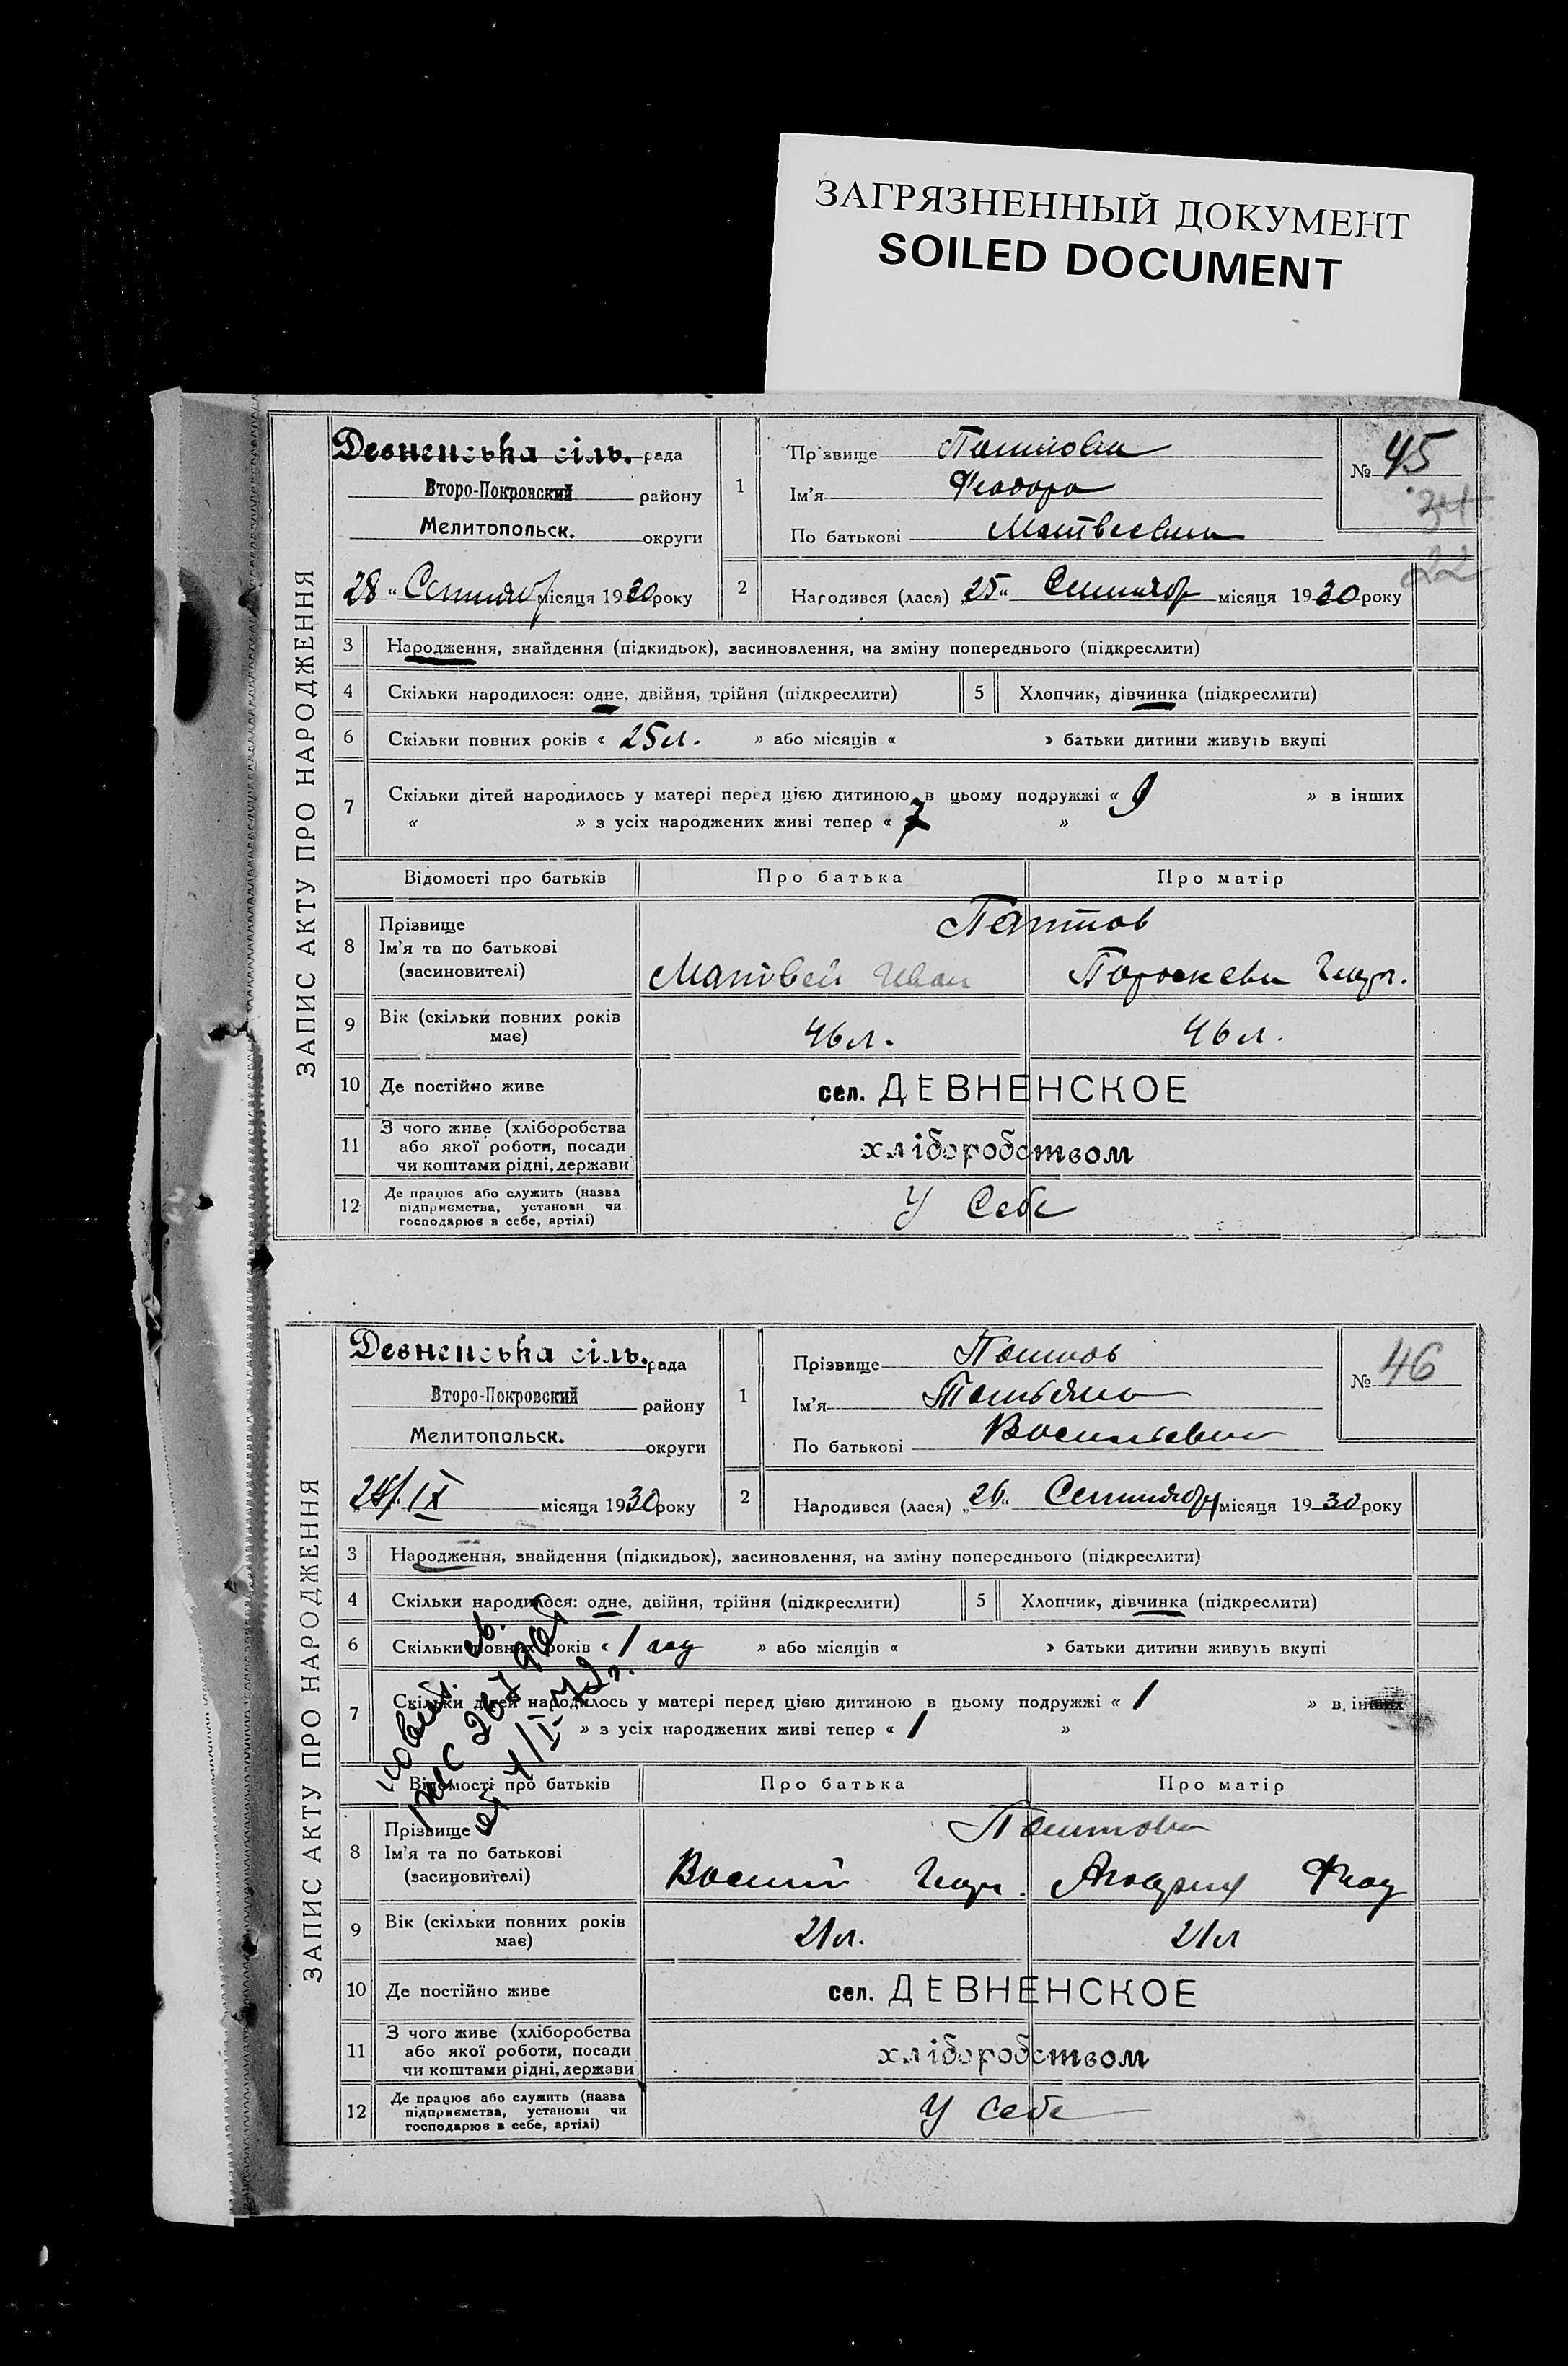 ЗАГРЯЗНЕННЫЙ ДОКУМЕНТ
SOILED DOCUMENT
ЗАПИС АКТУ ПРО НАРОДЖЕННЯ
Девненська сіль. рада
Второ-Покровский району
Мелитопольск. округи
28 " Сентяб місяця 1930 року
1
Прізвище
Ім'я Феодора
По батькові Матвеевна
№ 45
34
22
2
Народився (лася) „25" Сентябр місяця 1930 року
3 Народження, знайдення (підкидьок), засиновлення, на зміну попереднього (підкреслити)
4 Скільки народилося: одне, двійня, трійня (підкреслити)
5 Хлопчик, дівчинка (підкреслити)
6 Скільки повних років « 25 л. » або місяців « » батьки дитини живуть вкупі
7 Скільки дітей народилось у матері перед цією дитиною в цьому подружжі « 9 » в інших
« » з усіх народжених живі тепер « 7 »
Відомості про батьків Про батька Про матір
8 Прізвище
Ім'я та по батькові
(засиновителі)
Матвей Иван Пороскева Геор.
9 Вік (скільки повних років має) 46 л. 46 л.
10 Де постійно живе сел. ДЕВНЕНСКОЕ
11 З чого живе (хліборобства
або якої роботи, посади
чи коштами рідні, держави
хліборобством
12 Де працює або служить (назва
підприємства, установи чи
господарює в себе, артілі)
У Себе
ЗАПИС АКТУ ПРО НАРОДЖЕННЯ
Девненська сіль. рада
Второ-Покровский району
Мелитопольск. округи
28/IX місяця 1930 року
1
Прізвище
Ім'я Татьяна
По батькові Васильевна
№ 46
2
Народився (лася) „26" Сентября місяця 1930 року
3 Народження, знайдення (підкидьок), засиновлення, на зміну попереднього (підкреслити)
4 Скільки народилося: одне, двійня, трійня (підкреслити)
5 Хлопчик, дівчинка (підкреслити)
6 Скільки повних років « 1 год » або місяців « » батьки дитини живуть вкупі
7 Скільки дітей народилось у матері перед цією дитиною в цьому подружжі « 1 » в інших
» з усіх народжених живі тепер « 1 »
Відомості про батьків Про батька Про матір
8 Прізвище
Ім'я та по батькові
(засиновителі)
Василий Геор.
9 Вік (скільки повних років має) 21 л. 21 л
10 Де постійно живе сел. ДЕВНЕНСКОЕ
11 З чого живе (хліборобства
або якої роботи, посади
чи коштами рідні, держави
хліборобством
12 Де працює або служить (назва
підприємства, установи чи
господарює в себе, артілі)
У себе